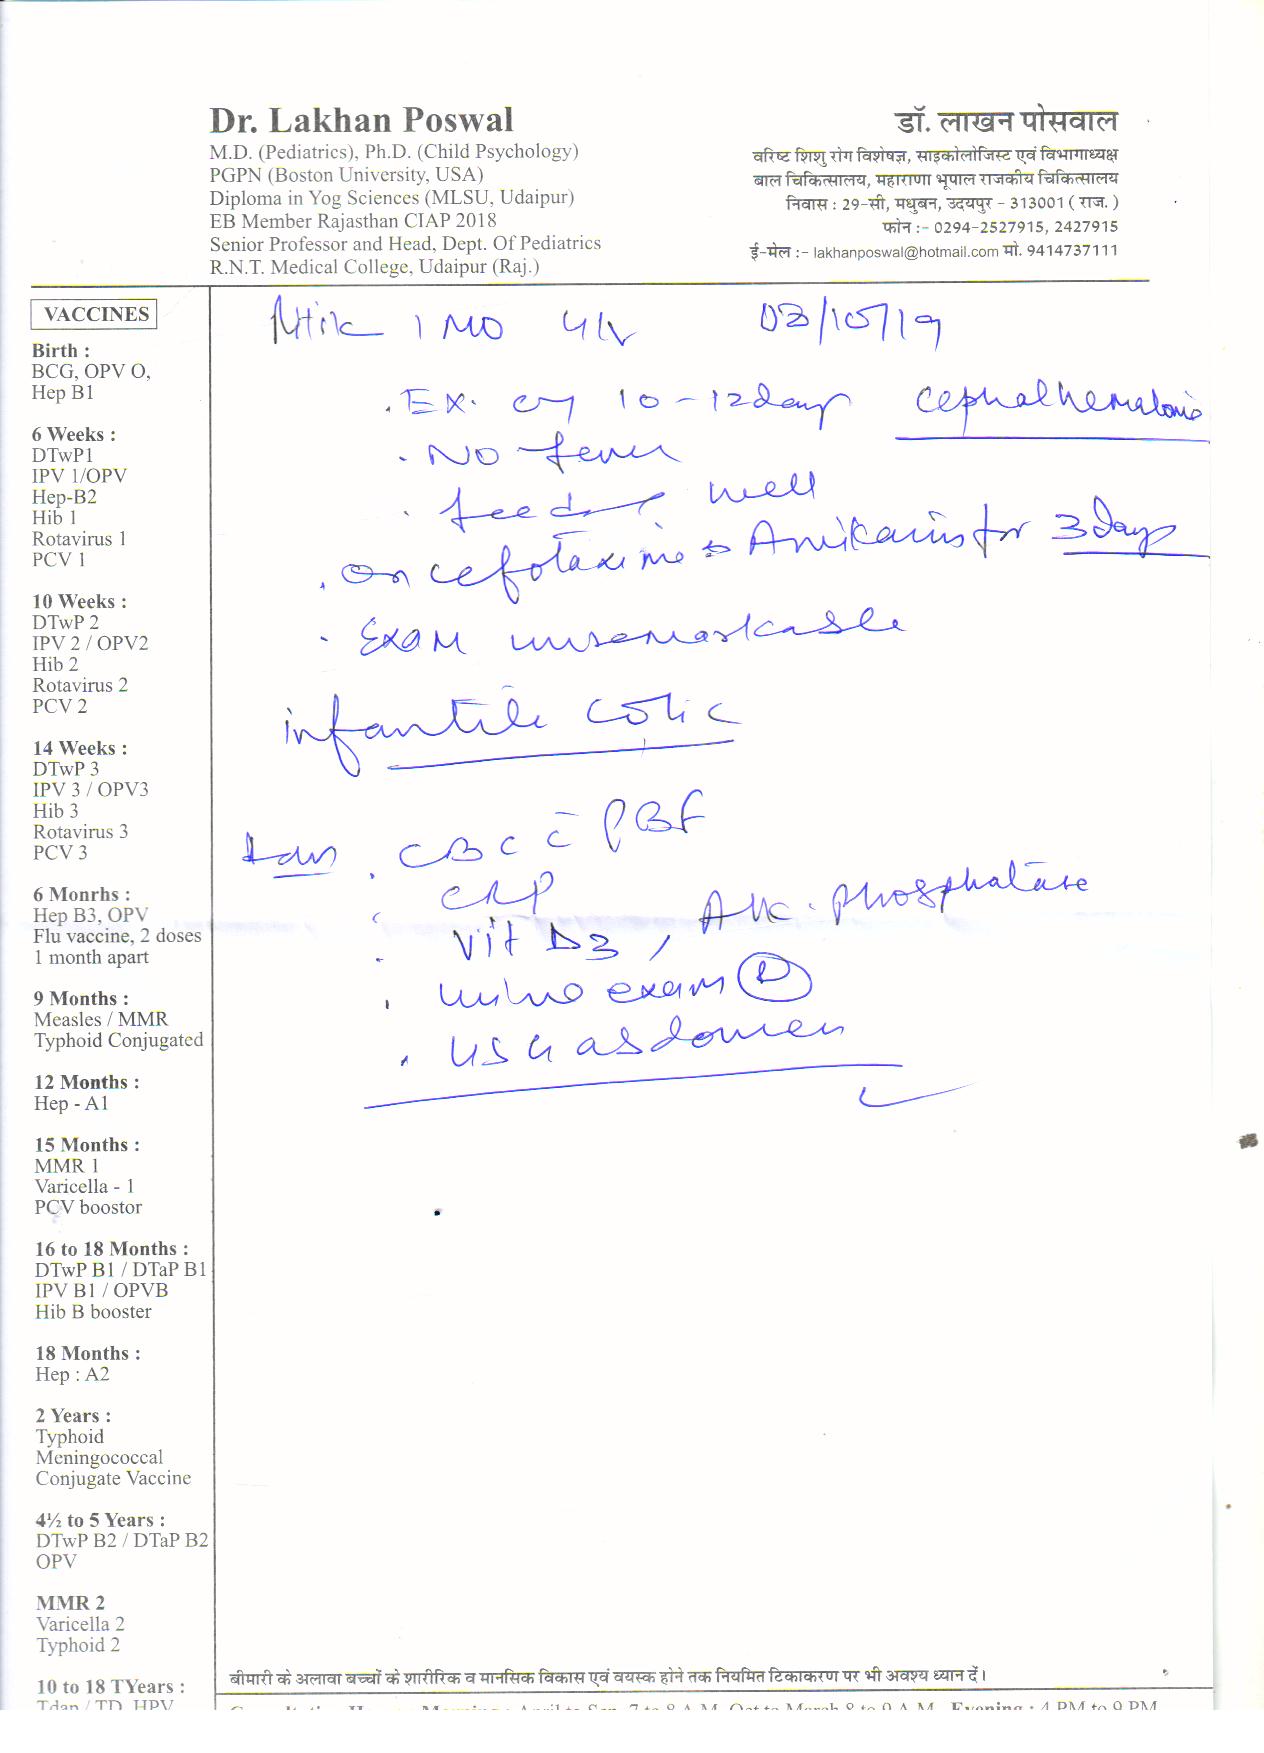 Dr. Lakhan Poswal
M.D. (Pediatrics), Ph.D. (Child Psychology)
PGPN (Boston University, USA)
Diploma in Yog Sciences (MLSU, Udaipur)
EB Member Rajasthan CIAP 2018
Senior Professor and Head, Dept. Of Pediatrics
R.N.T. Medical College, Udaipur (Raj.)
डॉ. लाखन पोसवाल
वरिष्ट शिशु रोग विशेषज्ञ, साइकोलोजिस्ट एवं विभागाध्यक्ष
बाल चिकित्सालय, महाराणा भूपाल राजकीय चिकित्सालय
निवास : 29-सी, मधुबन, उदयपुर - 313001 ( राज. )
फोन :- 0294-2527915, 2427915
ई-मेल :- lakhanposwal@hotmail.com मो. 9414737111
VACCINES
Birth :
BCG, OPV O,
Hep B1
6 Weeks :
DTwP1
IPV 1/OPV
Hep-B2
Hib 1
Rotavirus 1
PCV 1
10 Weeks :
DTwP 2
IPV 2 / OPV2
Hib 2
Rotavirus 2
PCV 2
14 Weeks :
DTwP 3
IPV 3 / OPV3
Hib 3
Rotavirus 3
PCV 3
6 Monrhs :
Hep B3, OPV
Flu vaccine, 2 doses
1 month apart
9 Months :
Measles / MMR
Typhoid Conjugated
12 Months :
Hep - A1
15 Months :
MMR 1
Varicella - 1
PCV boostor
16 to 18 Months :
DTwP B1 / DTaP B1
IPV B1 / OPVB
Hib B booster
18 Months :
Hep : A2
2 Years :
Typhoid
Meningococcal
Conjugate Vaccine
4½ to 5 Years :
DTwP B2 / DTaP B2
OPV
MMR 2
Varicella 2
Typhoid 2
10 to 18 TYears :
Tdap / TD, HPV
1 MO 03/10/19
. Ex. cry 10-12 days Cephalhematoma
. No fever
. feeding well
. On cefotaxime & Amikacin for 3 days
- Exam unremarkable
infantile colic
. CBC c̄ PBF
CRP
. Vit D3, Alk. phosphatase
. urine exam (R)
. USG abdomen
बीमारी के अलावा बच्चों के शारीरिक व मानसिक विकास एवं वयस्क होने तक नियमित टिकाकरण पर भी अवश्य ध्यान दें।
Consultation Hours : Morning : April to Sep. 7 to 8 A.M. Oct to March 8 to 9 A.M. Evening : 4 PM to 9 PM